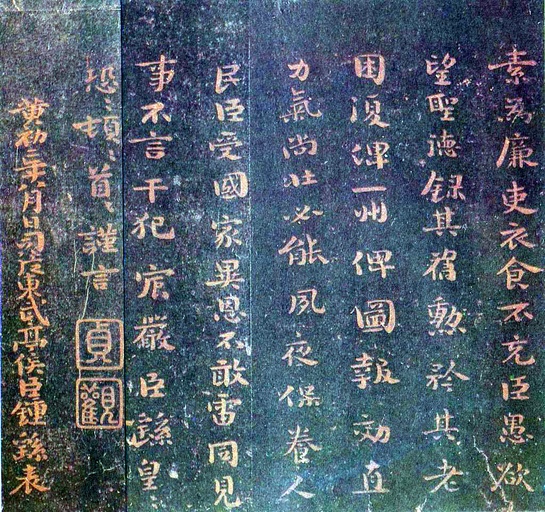 素為廉吏衣食不充臣愚欲
望聖德錄其舊勳矜其老
困復俾一州俾圖報效直
力氣尚壯必能夙夜保養人
民臣受國家異恩不敢雷同見
事不言干犯宸嚴臣繇皇
恐頓首頓首謹言
貞觀
黃初二年八月日司徒東武亭侯臣鍾繇表